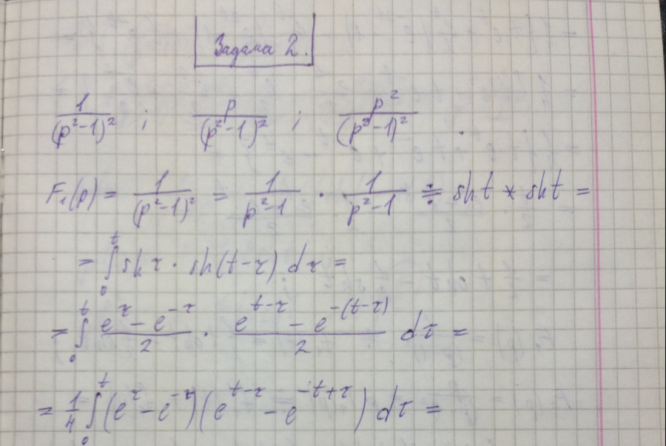 Задача 2.
1/(p²-1)² ; p/(p²-1)² ; p²/(p²-1)² .
F₁(p) = 1/(p²-1)² = 1/(p²-1) · 1/(p²-1) ≑ sh t * sh t =
= ∫₀ᵗ sh τ · sh(t-τ) dτ =
= ∫₀ᵗ (e^τ - e^(-τ))/2 · (e^(t-τ) - e^(-(t-τ)))/2 dτ =
= 1/4 ∫₀ᵗ (e^τ - e^(-τ))(e^(t-τ) - e^(-t+τ)) dτ =